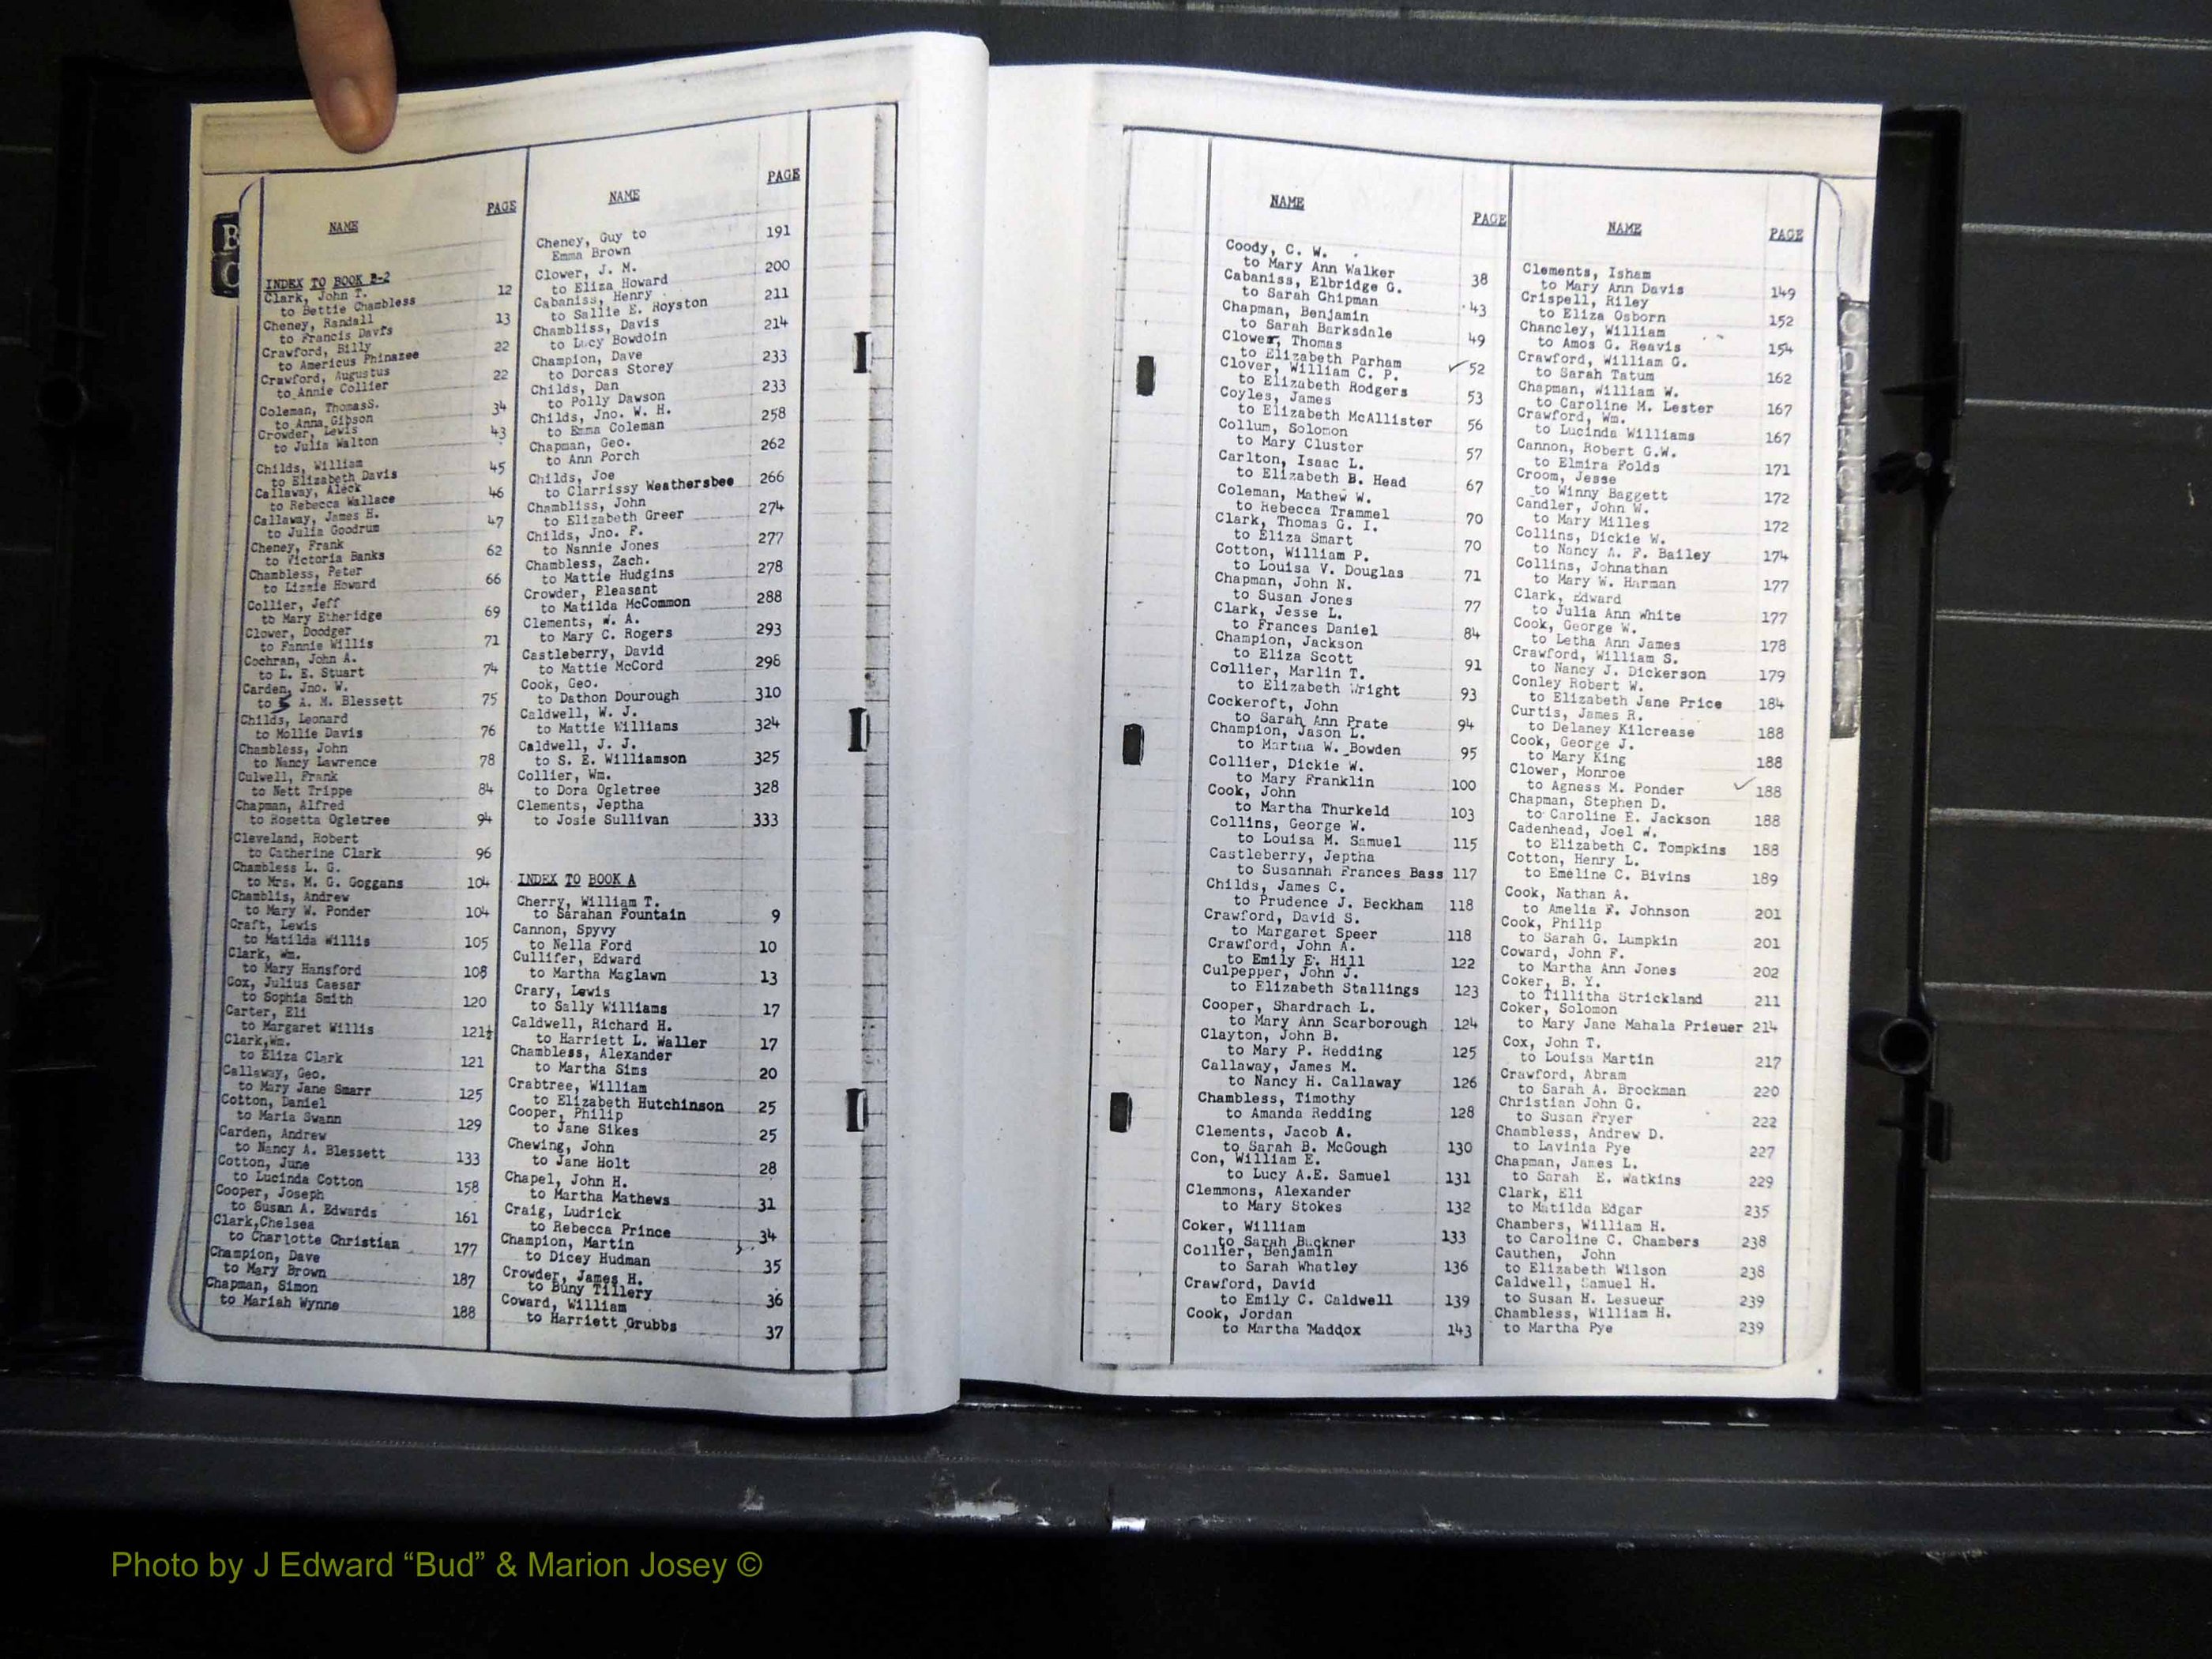 B
C
NAME
PAGE
INDEX TO BOOK B-2
Clark, John T.
to Bettie Chambless 12
Cheney, Randall
to Francis Davis 13
Crawford, Billy
to Americus Phinazee 22
Crawford, Augustus
to Annie Collier 22
Coleman, ThomasS.
to Anna Gibson 34
Crowder, Lewis
to Julia Walton 43
Childs, William
to Elizabeth Davis 45
Callaway, Aleck
to Rebecca Wallace 46
Callaway, James H.
to Julia Goodrum 47
Cheney, Frank
to Victoria Banks 62
Chambless, Peter
to Lizzie Howard 66
Collier, Jeff
to Mary Etheridge 69
Clower, Doodger
to Fannie Willis 71
Cochran, John A.
to L. E. Stuart 74
Carden, Jno. W.
to S A. M. Blessett 75
Childs, Leonard
to Mollie Davis 76
Chambless, John
to Nancy Lawrence 78
Culwell, Frank
to Nett Trippe 84
Chapman, Alfred
to Rosetta Ogletree 94
Cleveland, Robert
to Catherine Clark 96
Chambless L. G.
to Mrs. M. G. Goggans 104
Chamblis, Andrew
to Mary W. Ponder 104
Craft, Lewis
to Matilda Willis 105
Clark, Wm.
to Mary Hansford 108
Cox, Julius Caesar
to Sophia Smith 120
Carter, Eli
to Margaret Willis 121½
Clark,Wm.
to Eliza Clark 121
Callaway, Geo.
to Mary Jane Smarr 125
Cotton, Daniel
to Maria Swann 129
Carden, Andrew
to Nancy A. Blessett 133
Cotton, June
to Lucinda Cotton 158
Cooper, Joseph
to Susan A. Edwards 161
Clark,Chelsea
to Charlotte Christian 177
Champion, Dave
to Mary Brown 187
Chapman, Simon
to Mariah Wynne 188
NAME
PAGE
Cheney, Guy to 191
Emma Brown
Clower, J. M. 200
to Eliza Howard
Cabaniss, Henry 211
to Sallie E. Royston
Chambliss, Davis 214
to Lucy Bowdoin
Champion, Dave 233
to Dorcas Storey
Childs, Dan 233
to Polly Dawson
Childs, Jno. W. H. 258
to Emma Coleman
Chapman, Geo. 262
to Ann Porch
Childs, Joe
to Clarrissy Weathersbee 266
Chambliss, John
to Elizabeth Greer 274
Childs, Jno. F.
to Nannie Jones 277
Chambless, Zach.
to Mattie Hudgins 278
Crowder, Pleasant
to Matilda McCommon 288
Clements, W. A.
to Mary C. Rogers 293
Castleberry, David
to Mattie McCord 296
Cook, Geo.
to Dathon Dourough 310
Caldwell, W. J.
to Mattie Williams 324
Caldwell, J. J.
to S. E. Williamson 325
Collier, Wm.
to Dora Ogletree 328
Clements, Jeptha
to Josie Sullivan 333
INDEX TO BOOK A
Cherry, William T.
to Sarahan Fountain 9
Cannon, Spyvy
to Nella Ford 10
Cullifer, Edward
to Martha Maglawn 13
Crary, Lewis
to Sally Williams 17
Caldwell, Richard H.
to Harriett L. Waller 17
Chambless, Alexander
to Martha Sims 20
Crabtree, William
to Elizabeth Hutchinson 25
Cooper, Philip
to Jane Sikes 25
Chewing, John
to Jane Holt 28
Chapel, John H.
to Martha Mathews 31
Craig, Ludrick
to Rebecca Prince 34
Champion, Martin
to Dicey Hudman 35
Crowder, James H.
to Buny Tillery 36
Coward, William
to Harriett Grubbs 37
NAME
PAGE
Coody, C. W.
to Mary Ann Walker 38
Cabaniss, Elbridge G.
to Sarah Chipman 43
Chapman, Benjamin
to Sarah Barksdale 49
Clower, Thomas
to Elizabeth Parham ✓52
Clover, William C. P.
to Elizabeth Rodgers 53
Coyles, James
to Elizabeth McAllister 56
Collum, Solomon
to Mary Cluster 57
Carlton, Isaac L.
to Elizabeth B. Head 67
Coleman, Mathew W.
to Rebecca Trammel 70
Clark, Thomas G. I.
to Eliza Smart 70
Cotton, William P.
to Louisa V. Douglas 71
Chapman, John N.
to Susan Jones 77
Clark, Jesse L.
to Frances Daniel 84
Champion, Jackson
to Eliza Scott 91
Collier, Marlin T.
to Elizabeth Wright 93
Cockeroft, John
to Sarah Ann Prate 94
Champion, Jason L.
to Martha W. Bowden 95
Collier, Dickie W.
to Mary Franklin 100
Cook, John
to Martha Thurkeld 103
Collins, George W.
to Louisa M. Samuel 115
Castleberry, Jeptha
to Susannah Frances Bass 117
Childs, James C.
to Prudence J. Beckham 118
Crawford, David S.
to Margaret Speer 118
Crawford, John A.
to Emily E. Hill 122
Culpepper, John J.
to Elizabeth Stallings 123
Cooper, Shardrach L.
to Mary Ann Scarborough 124
Clayton, John B.
to Mary P. Redding 125
Callaway, James M.
to Nancy H. Callaway 126
Chambless, Timothy
to Amanda Redding 128
Clements, Jacob A.
to Sarah B. McGough 130
Con, William E.
to Lucy A.E. Samuel 131
Clemmons, Alexander
to Mary Stokes 132
Coker, William
to Sarah Buckner 133
Collier, Benjamin
to Sarah Whatley 136
Crawford, David
to Emily C. Caldwell 139
Cook, Jordan
to Martha Maddox 143
NAME
PAGE
Clements, Isham
to Mary Ann Davis 149
Crispell, Riley
to Eliza Osborn 152
Chancley, William
to Amos G. Reavis 154
Crawford, William G.
to Sarah Tatum 162
Chapman, William W.
to Caroline M. Lester 167
Crawford, Wm.
to Lucinda Williams 167
Cannon, Robert G.W.
to Elmira Folds 171
Croom, Jesse
to Winny Baggett 172
Candler, John W.
to Mary Milles 172
Collins, Dickie W.
to Nancy A. F. Bailey 174
Collins, Johnathan
to Mary W. Harman 177
Clark, Edward
to Julia Ann White 177
Cook, George W.
to Letha Ann James 178
Crawford, William S.
to Nancy J. Dickerson 179
Conley Robert W.
to Elizabeth Jane Price 184
Curtis, James R.
to Delaney Kilcrease 188
Cook, George J.
to Mary King 188
Clower, Monroe
to Agness M. Ponder ✓188
Chapman, Stephen D.
to Caroline E. Jackson 188
Cadenhead, Joel W.
to Elizabeth C. Tompkins 188
Cotton, Henry L.
to Emeline C. Bivins 189
Cook, Nathan A.
to Amelia F. Johnson 201
Cook, Philip
to Sarah G. Lumpkin 201
Coward, John F.
to Martha Ann Jones 202
Coker, B. Y.
to Tillitha Strickland 211
Coker, Solomon
to Mary Jane Mahala Prieuer 214
Cox, John T.
to Louisa Martin 217
Crawford, Abram
to Sarah A. Brockman 220
Christian John G.
to Susan Fryer 222
Chambless, Andrew D.
to Lavinia Pye 227
Chapman, James L.
to Sarah E. Watkins 229
Clark, Eli
to Matilda Edgar 235
Chambers, William H.
to Caroline C. Chambers 238
Cauthen, John
to Elizabeth Wilson 238
Caldwell, Samuel H.
to Susan H. Lesueur 239
Chambless, William H.
to Martha Pye 239
Photo by J Edward “Bud” & Marion Josey ©